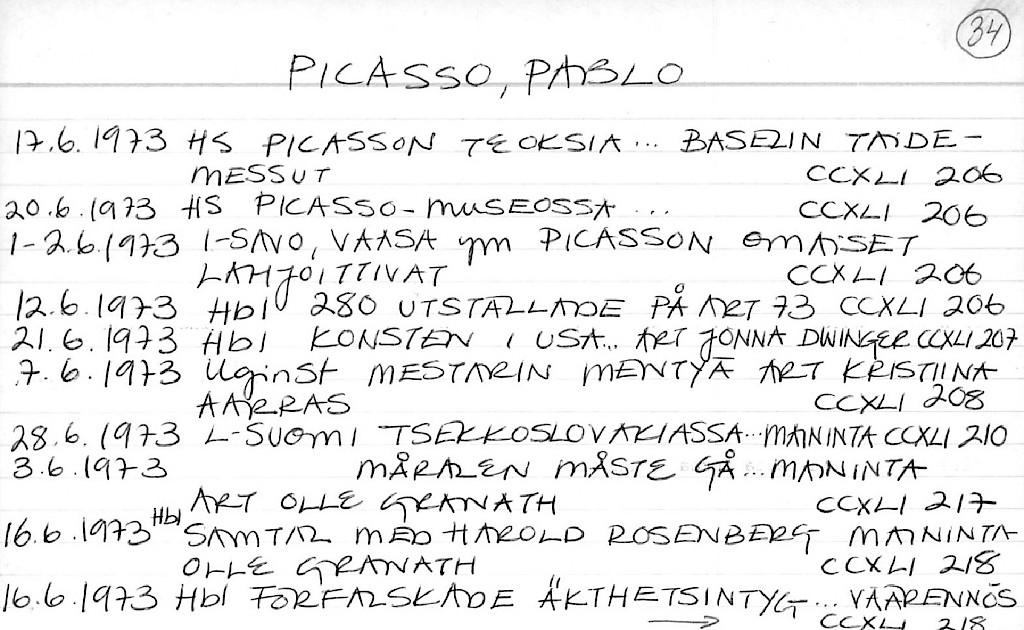 34
PICASSO, PABLO
17.6.1973 HS PICASSON TEOKSIA... BASELIN TAIDE-
MESSUT CCXLI 206
20.6.1973 HS PICASSO-MUSEOSSA... CCXLI 206
1-2.6.1973 I-SAVO, VAASA ym PICASSON OMAISET
LAHJOITTIVAT CCXLI 206
12.6.1973 Hbl 280 UTSTÄLLADE PÅ ART 73 CCXLI 206
21.6.1973 Hbl KONSTEN I USA... ART JONNA DWINGER CCXLI 207
7.6.1973 MESTARIN MENTYÄ ART KRISTIINA
AARRAS CCXLI 208
28.6.1973 L-SUOMI TSEKKOSLOVAKIASSA... MAININTA CCXLI 210
3.6.1973 MÅRALEN MÅSTE GÅ... MAININTA
ART OLLE GRANATH CCXLI 217
16.6.1973 Hbl SAMTAL MED HAROLD ROSENBERG MAININTA
OLLE GRANATH CCXLI 218
16.6.1973 Hbl FÖRFALSKADE ÄKTHETSINTYG... VÄÄRENNÖS
→ CCXLI 218